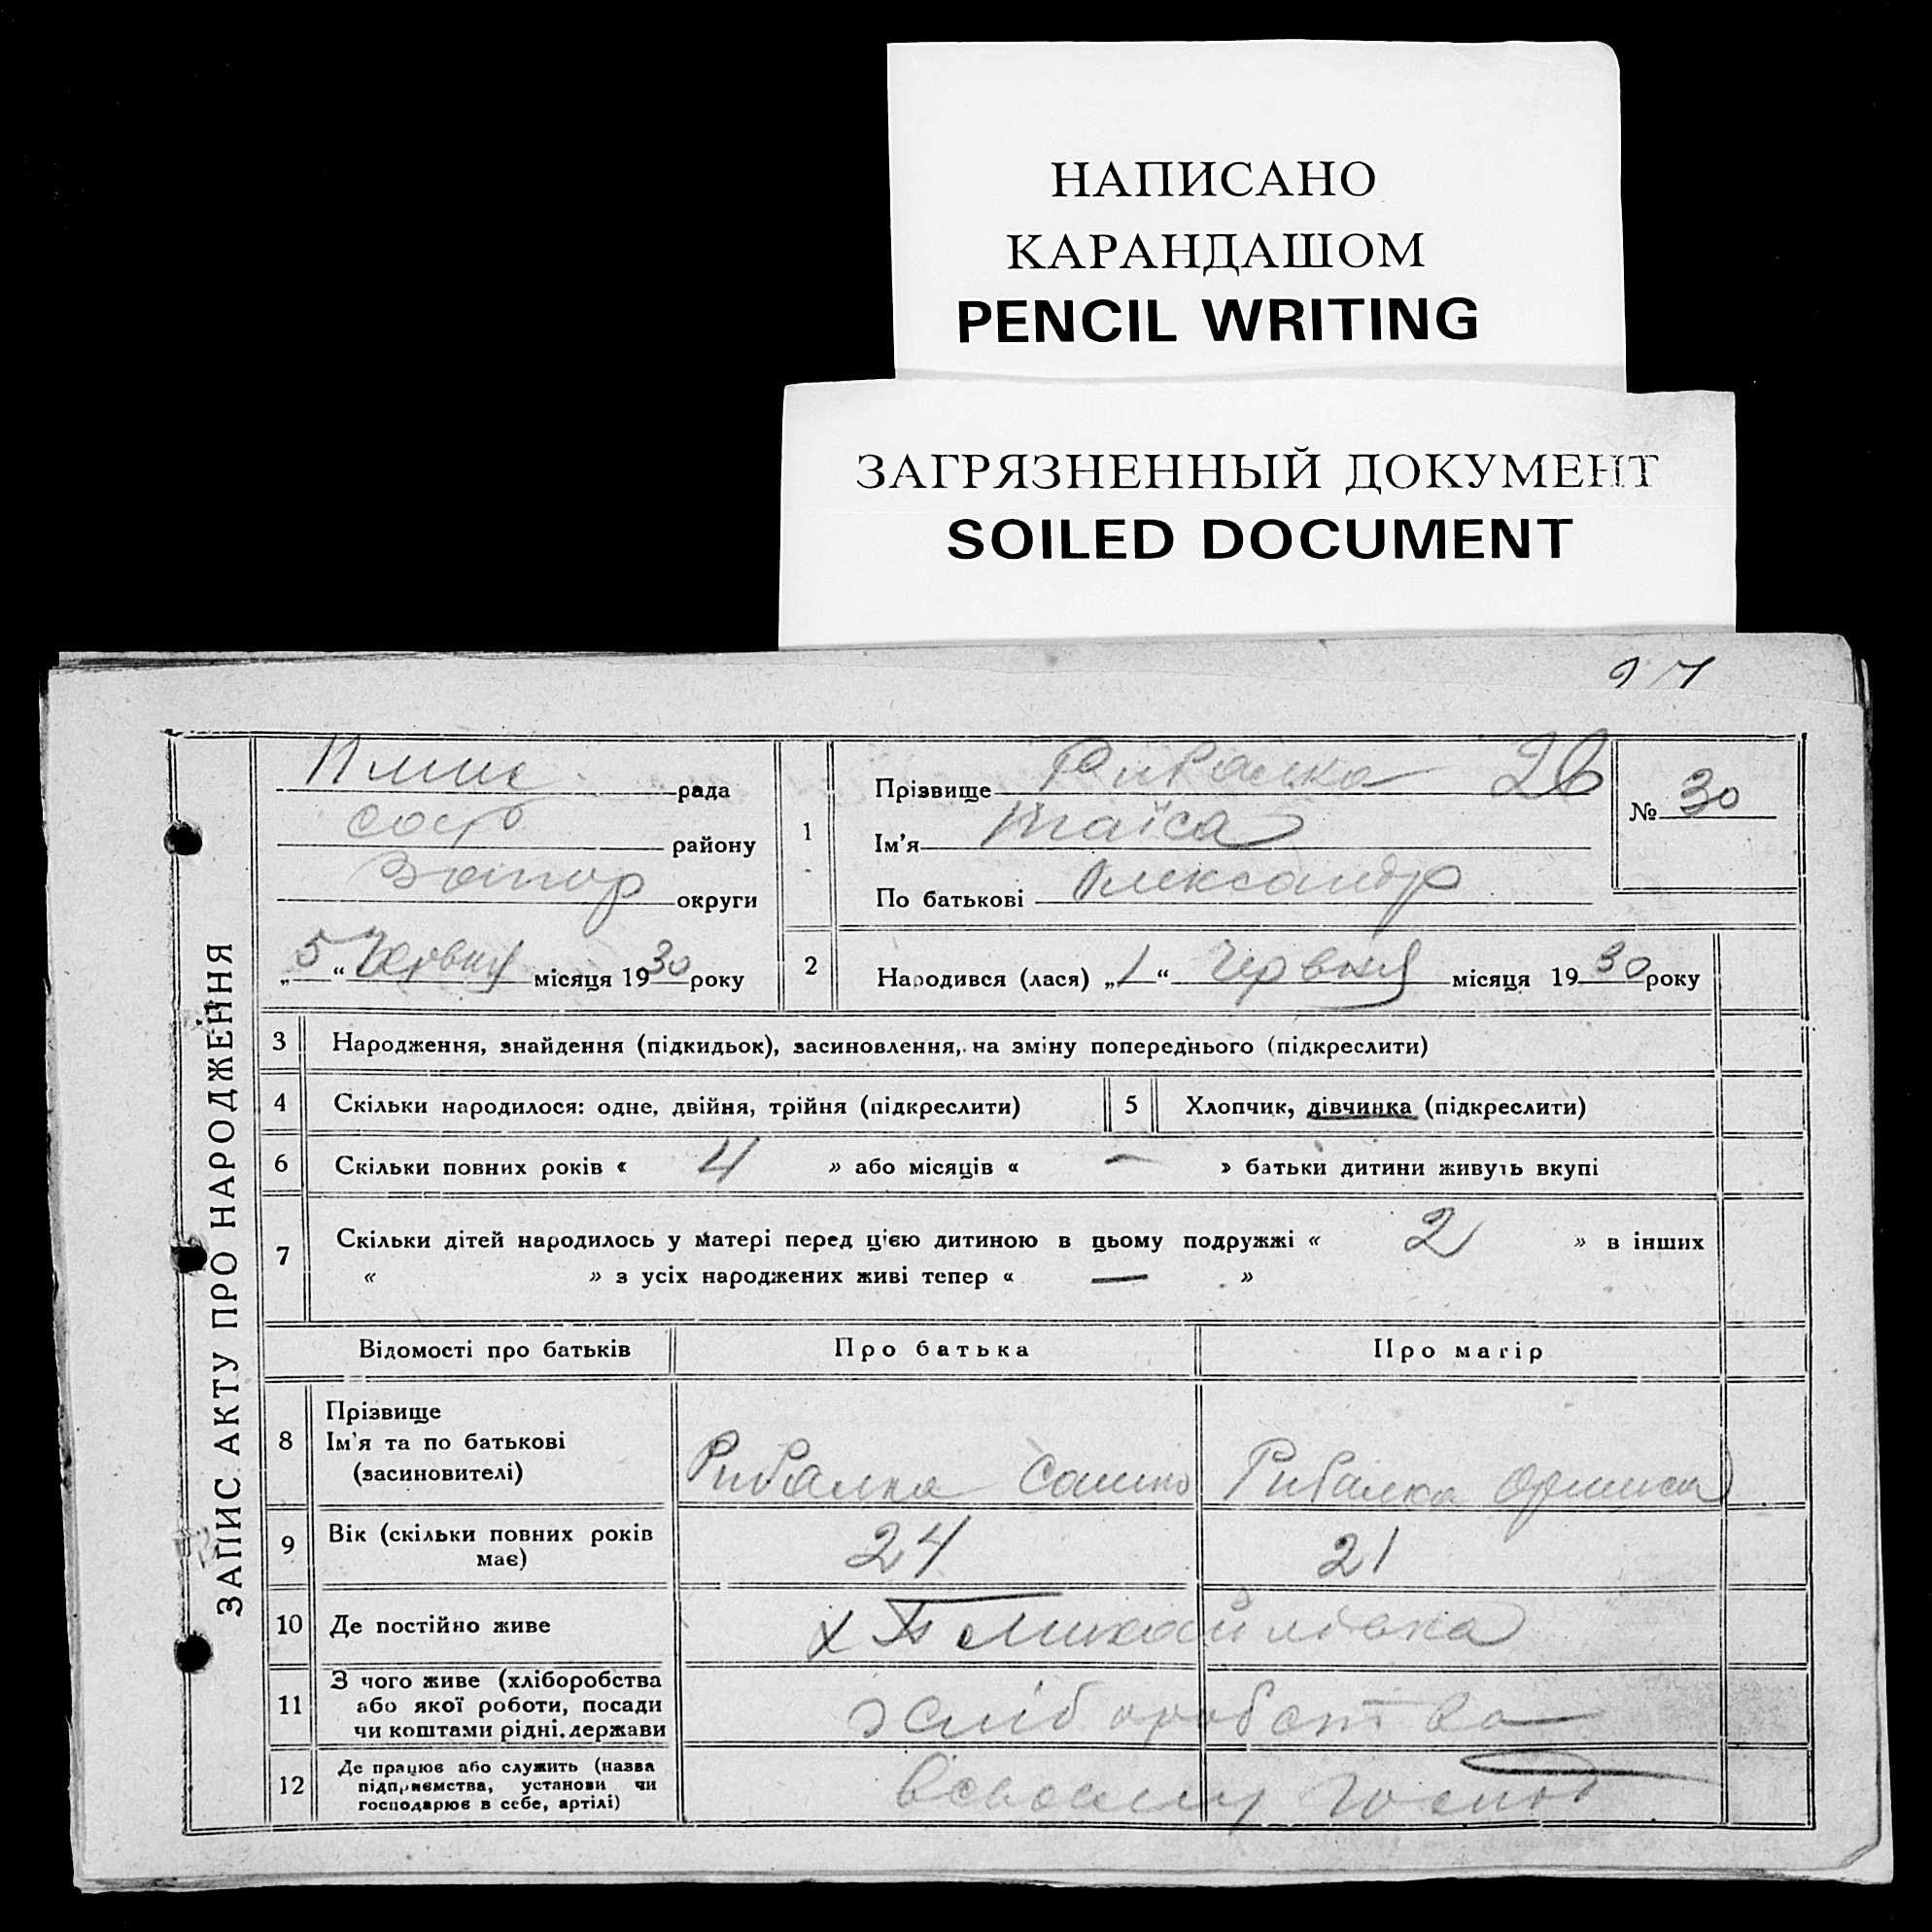 НАПИСАНО
КАРАНДАШОМ
PENCIL WRITING
ЗАГРЯЗНЕННЫЙ ДОКУМЕНТ
SOILED DOCUMENT
ЗАПИС АКТУ ПРО НАРОДЖЕННЯ
рада
району
округи
„5“ Червня місяця 1930 року
1 Прізвище Рибалка 26
Ім'я Таїса
По батькові Олександр
№ 30
2 Народився (лася) „1“ Червня місяця 1930 року
3 Народження, знайдення (підкидьок), засиновлення, на зміну попереднього (підкреслити)
4 Скільки народилося: одне, двійня, трійня (підкреслити) 5 Хлопчик, дівчинка (підкреслити)
6 Скільки повних років « 4 » або місяців « — » батьки дитини живуть вкупі
7 Скільки дітей народилось у матері перед цією дитиною в цьому подружжі « 2 » в інших
« » з усіх народжених живі тепер « — »
Відомості про батьків Про батька Про матір
8 Прізвище
Ім'я та по батькові
(засиновителі)
Рибалка Сашко Рибалка
9 Вік (скільки повних років
має)
24 21
10 Де постійно живе Михайлівка
11 З чого живе (хліборобства
або якої роботи, посади
чи коштами рідні, держави
хліборобства
12 Де працює або служить (назва
підприємства, установи чи
господарює в себе, артілі)